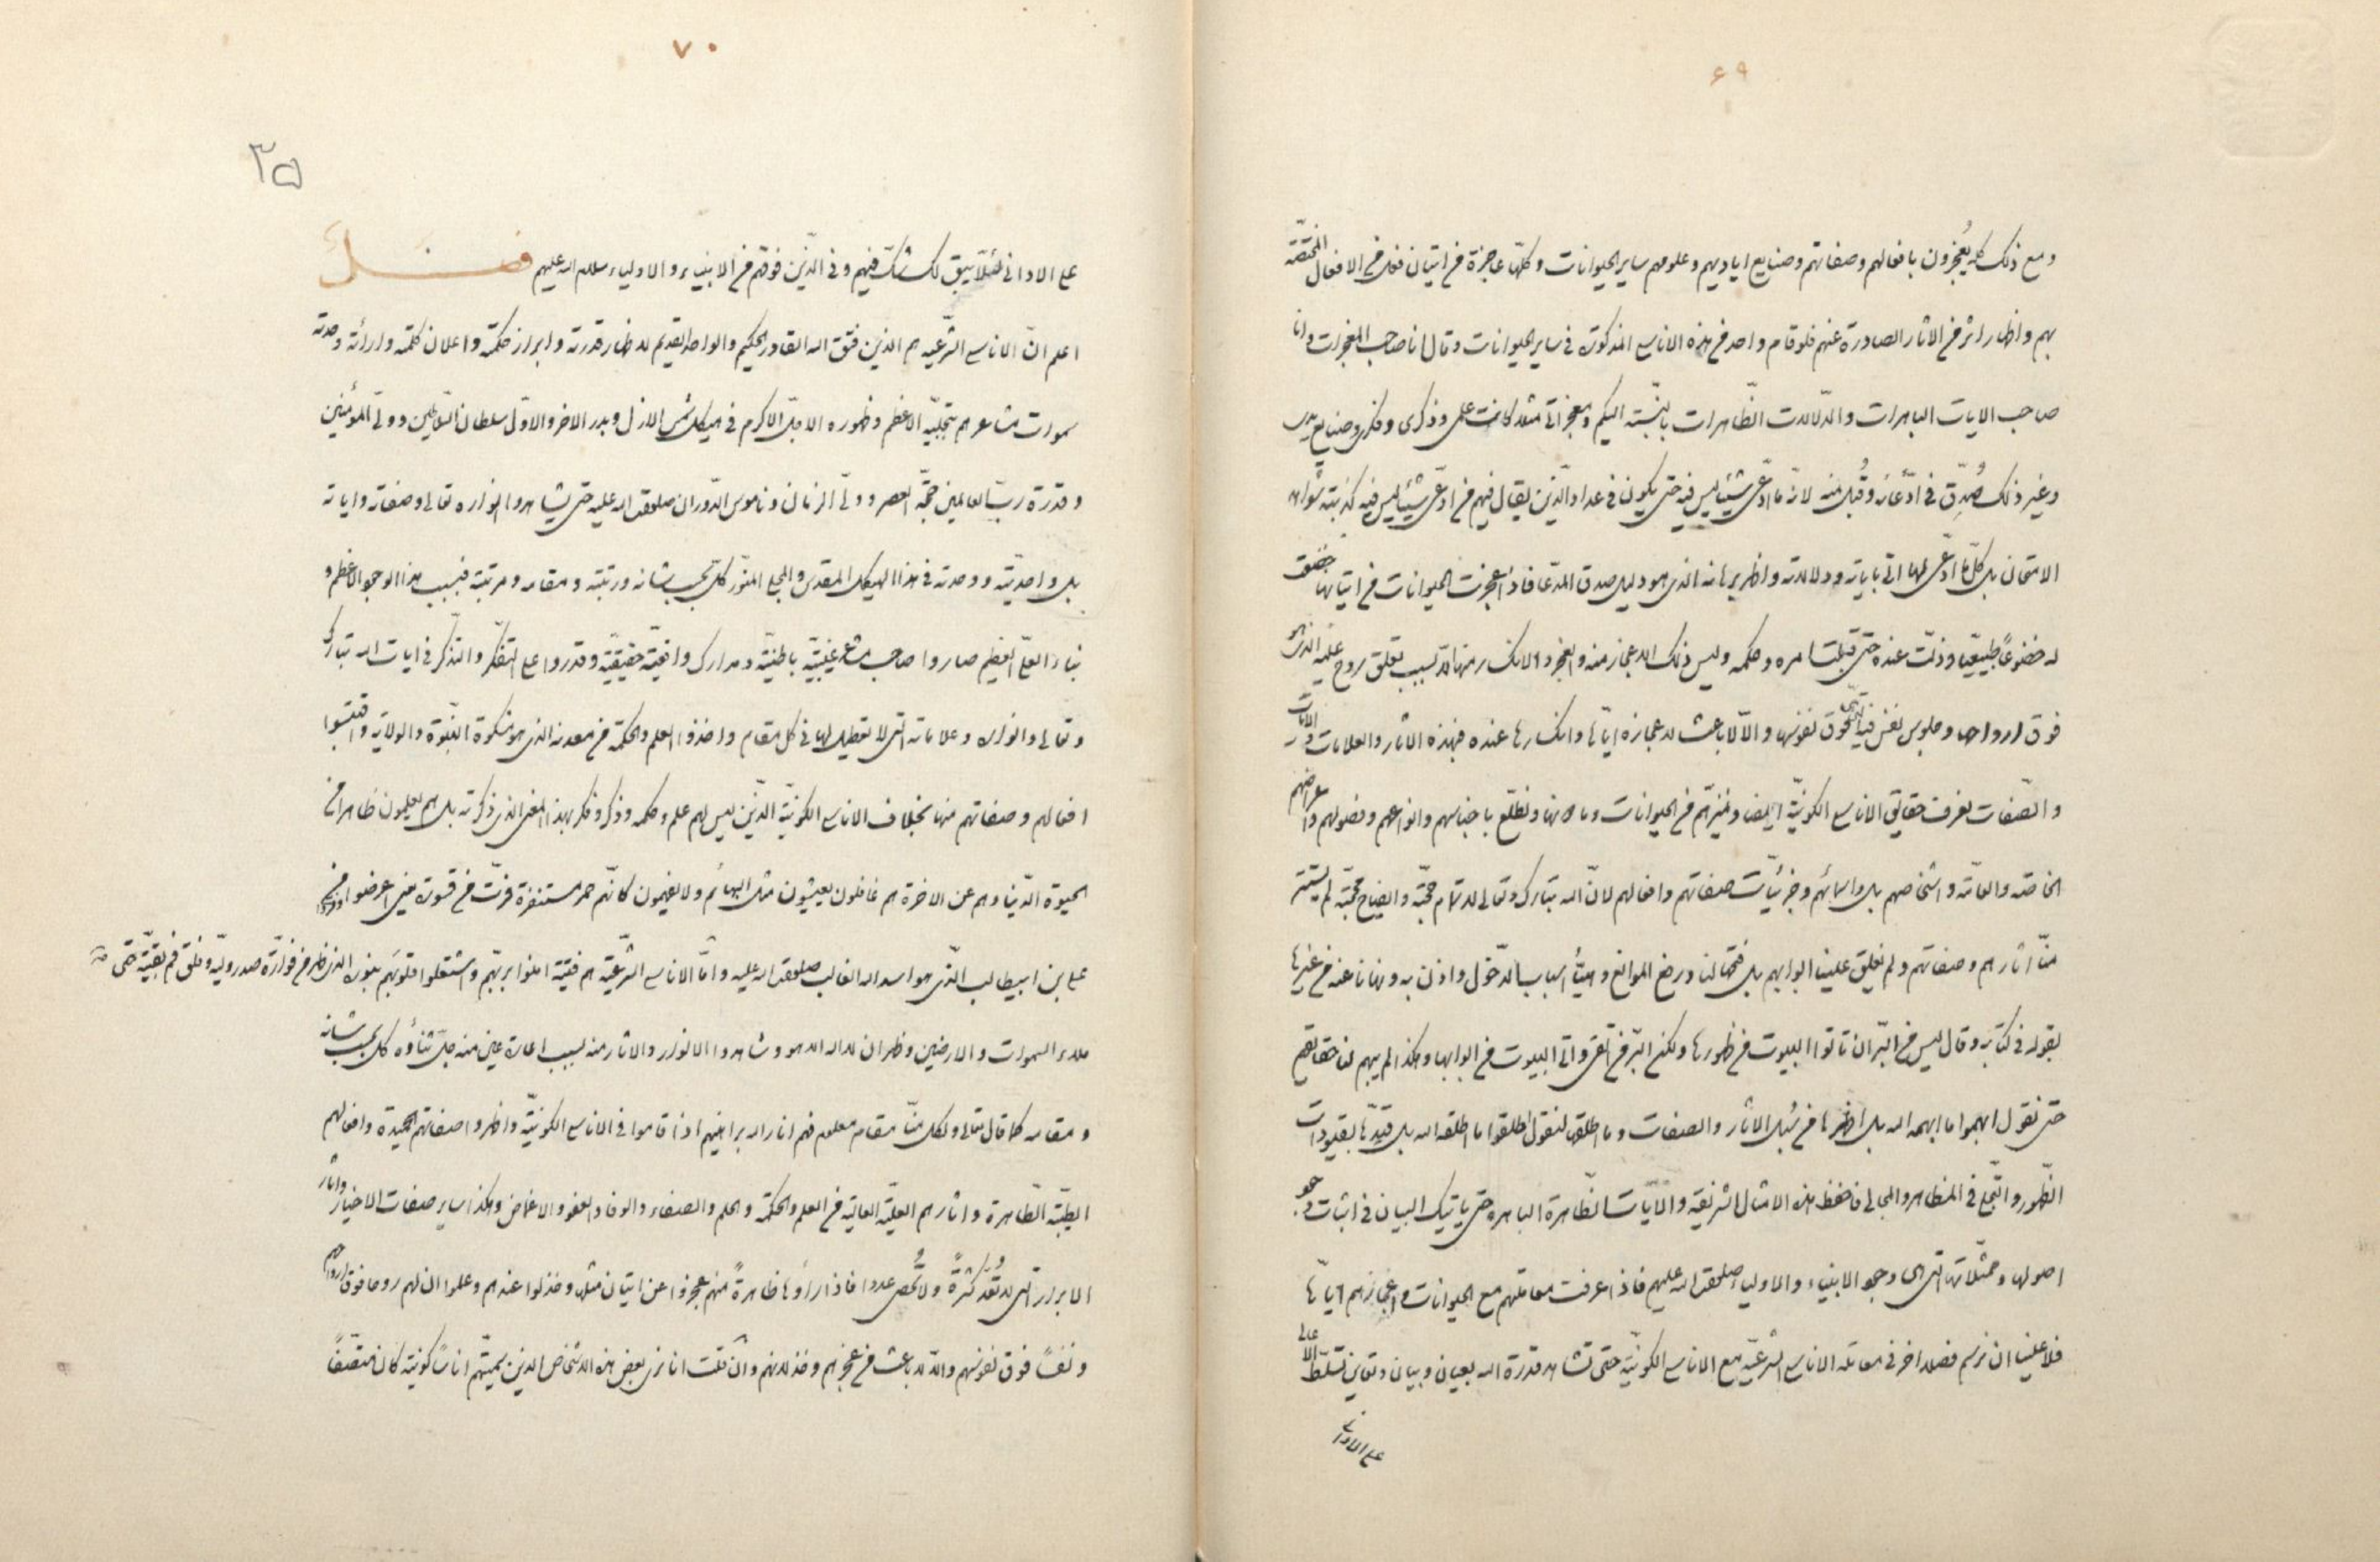 ٦٩
ومع ذلك كله يُعجزون بافعالهم وصفاتهم وصنايع اياديهم وعلومهم ساير الحيوانات وكلها عاجزة من اتيان فعل من الافعال المختصّة
بهم واظهار اثر من الاثار الصادرة عنهم فلو قام واحد من هذه الاناسى المذكورة فى ساير الحيوانات وقال انا صاحب المعجزات وانا
صاحب الايات الباهرات والدّلالات الظّاهرات بالنّسبة اليكم ومعجزاتى مثلا كانت علمى وذكرى وفكرى وصنايع يدى
وغير ذلك صُدّق فى ادّعائه وقُبل منه لانّه ما ادّعى شيئا ليس فيه حتى يكون فى عداد الّذين يقال فيهم من ادّعى شيئا ليس فيه كذبته شواهد
الامتحان بل كلّما ادّعى لها اتى باياته ودلالاته واظهر برهانه الذى هو دليل صدق المدّعا فاذا عجزت الحيوانات من اتيانها خضعت
له خضوعاً طبيعيّا وذلّت عنده حتى قبلت امره وحكمه وليس ذلك الاعجاز منه والعجز والانكسار منها الّا بسبب تعلق روح علمية الذى هو
فوق ارواحها وجلوس نفس فيه التى فوق نفوسها والّا لا باعث لاعجازه ايّاها وانكسارها عنده فبهذه الاثار والعلامات والايات
والصّفات تعرف حقايق الاناسى الكونيّة ايضا وتميّزهم من الحيوانات وما دونها وتطّلع باجناسهم وانواعهم وفصولهم واعراضهم
الخاصّه والعامّه واشخاصهم بل واسمائهم وجزئيّات صفاتهم وافعالهم لانّ الله تبارك وتعالى لاتمام حجّته وايضاح محجّته لم يستتر
منّا اثارهم وصفاتهم ولم يغلق علينا ابوابهم بل فتحها لنا ورفع الموانع وهيّأ اسباب الدّخول واذن به ونهانا عنه من غيرها
بقوله فى كتابه وقال ليس من البّر ان تاتوا البيوت من ظهورها ولكن البّر من اتّقى واتوا البيوت من ابوابها وهكذا لم يبهم لنا حقايقهم
حتى نقول ابهموا ما ابهمه الله بل اظهرها من سُبل الاثار والصفات وما اطلقها لنقول اطلقوا ما اطلقه الله بل قيدّها بقيودات
الظّهور والتّجلى فى المظاهر والمجالى فاحفظ هذه الامثال الشريفة والايات الظّاهرة الباهره حتى ياتيك البيان فى اثبات وجود
اصولها وممثّلاتها التى هى وجود الانبياء والاولياء صلوات الله عليهم فاذا عرفت معاملتهم مع الحيوانات واعجازهم ايّاها
فلا علينا ان نرسم فصلا اخر فى معاملة الاناسى الشرعيّه مع الاناسى الكونيّة حتى تشاهد قدرة الله بعيان وبيان وتعاين تسلّط الاعالى
على الادانى
٧٠
٣٥
على الادانى لئلّا يبقى لك شكّ فيهم وفى الّذين فوقهم من الانبياء والاولياء سلام الله عليهم فصل
اعلم انّ الاناسى الشّرعيّه هم الذين فتق الله القادر الحكيم والواحد القديم لاظهار قدرته وابراز حكمته واعلان كلمته واراءة وحدته
سموات مشاعرهم بتجلّيه الاعظم وظهوره الاجلّ الاكرم فى هيكل شمس الازل وبدر الاخر والاوّل سلطان السّلاطين وولىّ المؤمنين
وقدرة ربّ العالمين حجّة العصر وولىّ الزمان وناموس الدّوران صلوات الله عليه حتى يشاهدوا انواره تعالى وصفاته واياته
بل واحديّته ووحدته فى هذا الهيكل المقدس والمجلى المنوّر كلّ بحسب شانه ورتبته ومقامه ومرتبته فبسبب هذا الوجود الاعظم و
النباء العلىّ العظيم صاروا صاحب مشاعر غيبيّة باطنيّة ومدارك واقعيّة حقيقيّة وقدروا على التفكّر والتذكّر فى ايات الله تبارك
وتعالى وانواره وعلاماته التى لا تعطيل لها فى كل مقام واخذوا العلم والحكمة من معدنه الذى هو مشكوة النّبوّة والولاية واقتبسوا
افعالهم وصفاتهم منها بخلاف الاناسى الكونيّة الّذين ليس لهم علم وحكمه وذكر وفكر بهذا المعنى الذى ذكرته بل هم يعلمون ظاهرا من
الحيوة الدّنيا وهم عن الاخرة هم غافلون يعيشون مثل البهائم ولا يفهمون كانّهم حمر مستنفرة فرّت من قسورة يعنى اعرضوا وفرّوا من
على بن ابيطالب الّذى هو اسد الله الغالب صلوات الله عليه وامّا الاناسى الشّرعيّة هم فتية امنوا بربّهم واشتعلوا قلوبهم بنوره الذى ظهر من فوّارة صدر وليّه وخلق من بقيّته حتى ملأ
ملاء السموات والارضين وظهر ان لا اله الا هو وشاهدوا الانوار والاثار منه بسبب اعارة عين منه جلّ ثناؤه كل بحسب شانه
ومقامه كما قال تعالى ولكل منّا مقام معلوم فهم انار الله براهينهم اذ اقاموا فى الاناسى الكونيّة واظهروا صفاتهم الحميدة وافعالهم
الطيّبة الطّاهرة واثارهم العليّة العالية من العلم والحكمة والحلم والصفاء والوفاء والعفو والاغماض وهكذا ساير صفات الاخيار واثار
الابرار التى لا تُعدّ كثرةً ولا تُحصى عددا فاذا رأوها ظاهرةً منهم عجزوا عن اتيان مثلها وخذلوا عندهم وعلموا ان لهم روحا فوق ارواحهم
ونفساً فوق نفوسهم والّا لا باعث من عجزهم وخذلانهم وان قلت انا نرى بعض هذه الاشخاص الذين سميتهم اناسىّ كونية كان متّصفاً